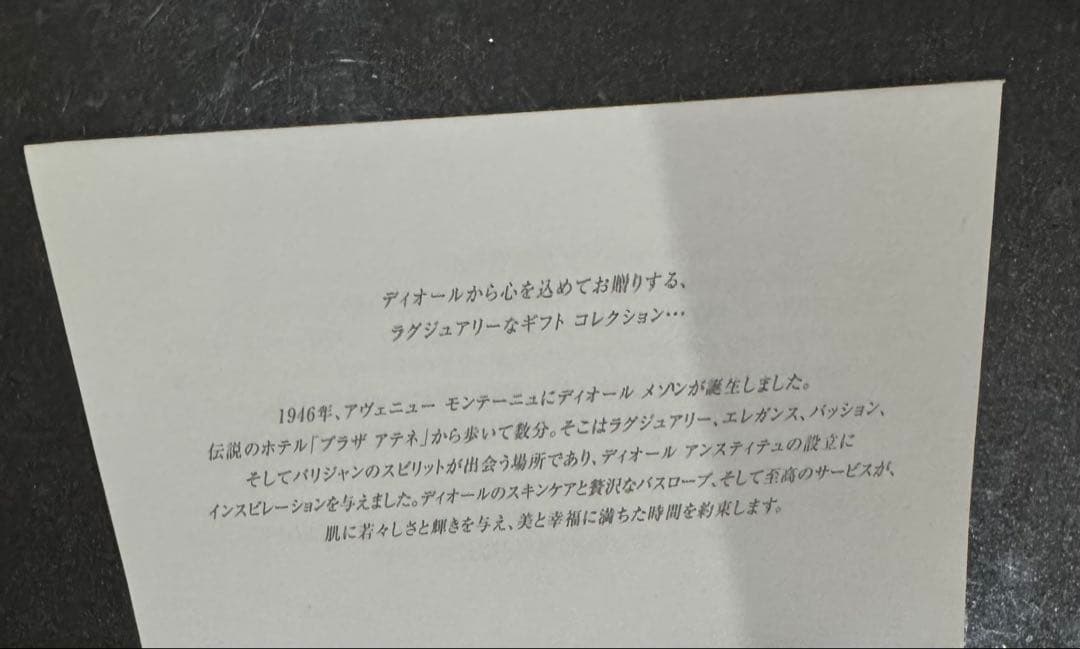 ディオールから心を込めてお贈りする、
ラグジュアリーなギフト コレクション…
1946年、アヴェニュー モンテーニュにディオール メゾンが誕生しました。
伝説のホテル「プラザ アテネ」から歩いて数分。そこはラグジュアリー、エレガンス、パッション、
そしてパリジャンのスピリットが出会う場所であり、ディオール アンスティテュの設立に
インスピレーションを与えました。ディオールのスキンケアと贅沢なバスローブ、そして至高のサービスが、
肌に若々しさと輝きを与え、美と幸福に満ちた時間を約束します。